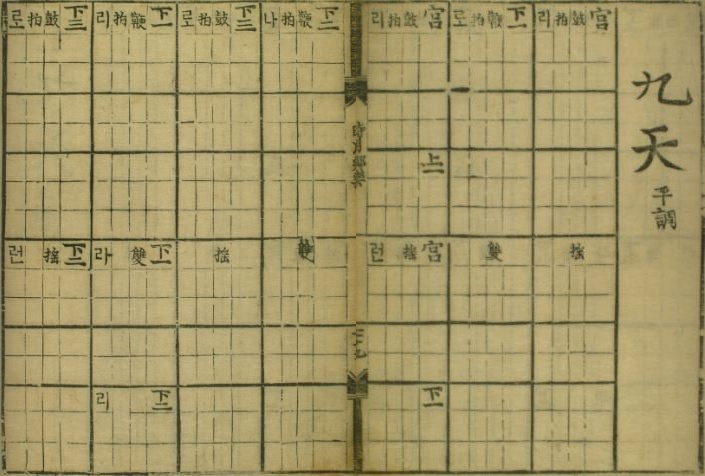 九天 平調
宮 鼓 拍 리
搖
下一 鞭 拍 로
雙
宮 鼓 拍 리
上一
宮 搖 런
下一
時用鄕樂
下二 鞭 拍 나
雙
下三 鼓 拍 로
搖
下一 鞭 拍 리
下二 雙 라
下二 리
下三 鼓 拍 로
下二 搖 런